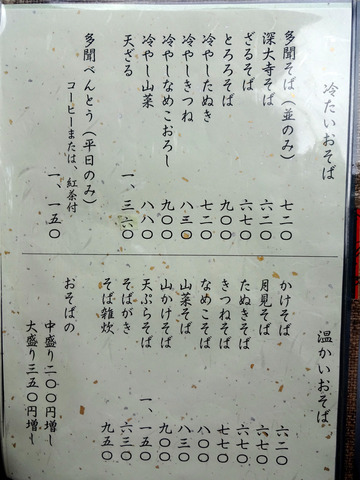 冷たいおそば
多聞そば（並のみ） 七二〇
深大寺そば 六二〇
ざるそば 六七〇
とろろそば 九〇〇
冷やしたぬき 七二〇
冷やしきつね 八三〇
冷やしなめこおろし 九〇〇
冷やし山菜 八八〇
天ざる 一、三六〇
多聞べんとう（平日のみ）
コーヒーまたは、紅茶付
一、一五〇
温かいおそば
かけそば 六二〇
月見そば 六七〇
たぬきそば 六七〇
きつねそば 七七〇
なめこそば 八〇〇
山菜そば 八三〇
山かけそば 九〇〇
天ぷらそば 一、一五〇
そばがき 六三〇
そば雑炊 九五〇
おそばの
中盛り二〇〇円増し
大盛り三五〇円増し